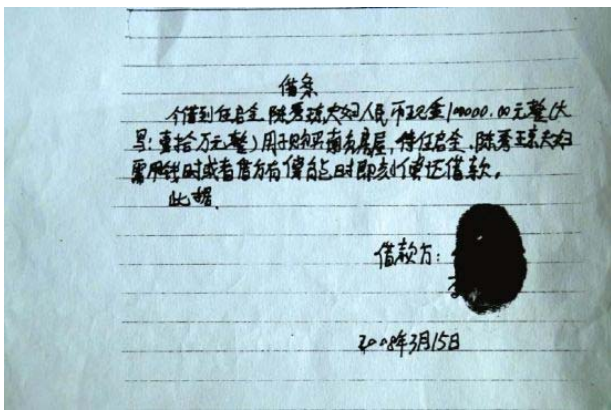 借条
今借到任启全、陈秀琼夫妇人民币现金100000.00元整(大
写:壹拾万元整)用于购买商务房屋,待任启全、陈秀琼夫妇
需用钱时或者借方有偿能时即刻偿还借款。
此据。
借款方:
2008年3月15日